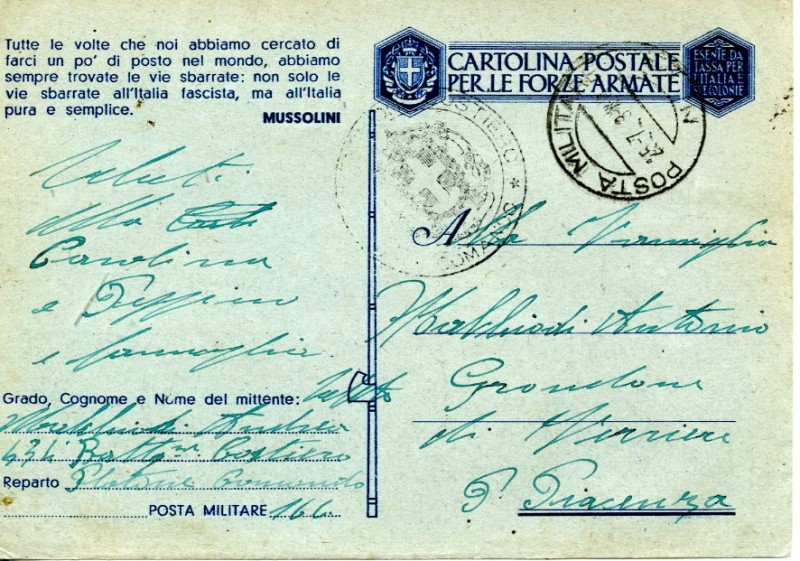 Tutte le volte che noi abbiamo cercato di
farci un po' di posto nel mondo, abbiamo
sempre trovate le vie sbarrate: non solo le
vie sbarrate all'Italia fascista, ma all'Italia
pura e semplice.
MUSSOLINI
CARTOLINA POSTALE
PER LE FORZE ARMATE
ESENTE DA
TASSA PER
L'ITALIA E
LE COLONIE
POSTA MILITARE N
25.7
COSTIERO * COMANDO
Saluti
alla
Carolina
e Peppino
e famiglia
Grado, Cognome e Nome del mittente:
Malchiodi Andrea
431 Battne Costiero
Reparto Plotone Comando
POSTA MILITARE 166
Alla Famiglia
Malchiodi Antonio
Grondone
di Ferriere
P. Piacenza